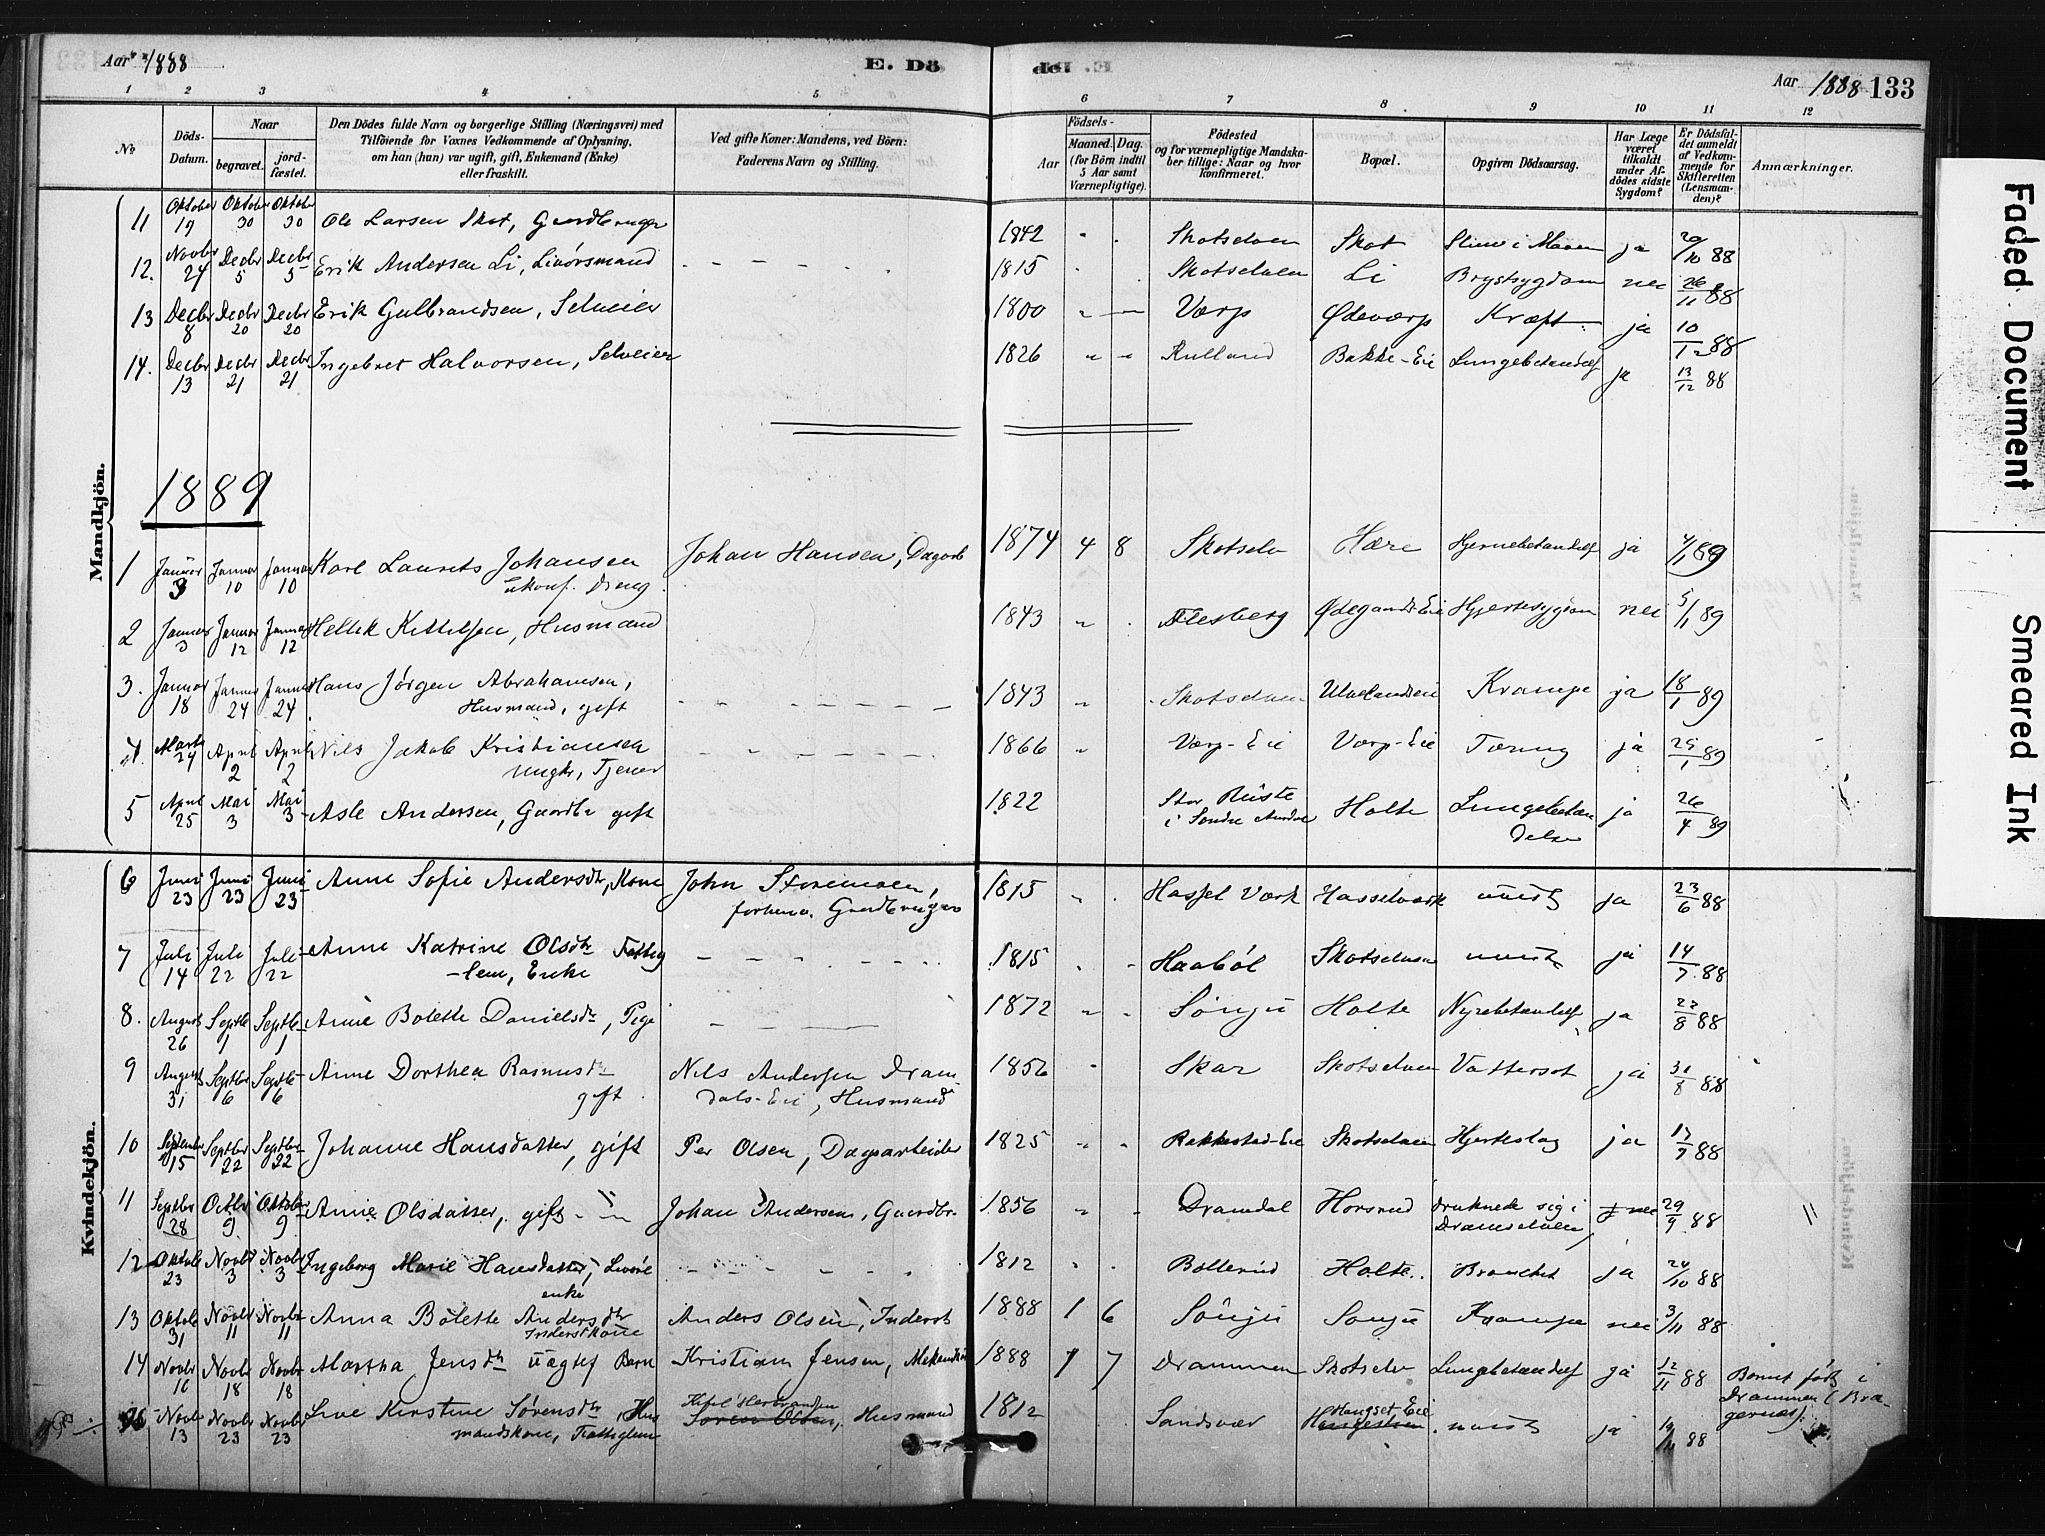 Aar 1888
E. Dö
de.
Aar 1888 133
1 2 3 4 5 6 7 8 9 10 11 12
No
Döds-Datum.
Naar
begravet.
jordfæstet.
Den Dödes fulde Navn og borgerlige Stilling (Næringsvei) med
Tilföiende for Voxnes Vedkommende af Oplysning,
om han (hun) var ugift, gift, Enkemand (Enke)
eller fraskilt.
Ved gifte Koner: Mandens, ved Börn:
Faderens Navn og Stilling.
Födsels-
Aar
Maaned. Dag.
(for Börn indtil
5 Aar samt
Værnepligtige).
Födested
og for værnepligtige Mandska-
ber tillige: Naar og hvor
konfirmeret.
Bopæl.
Opgiven Dödsaarsag.
Har Læge
været
tilkaldt
under Af-
dödes sidste
Sygdom?
Er Dödsfal-
det anmeldt
af Vedkom-
mende for
Skifteretten
(Lensman-
den)?
Anmærkninger.
Mandkjön.
11 Oktober 19 Oktober 30 Oktober 30 Ole Larsen Skot, Gaardbruger 1842 Skotselven Skot i Maven ja 88
12. Novbr 24 Decbr 5 Decbr 5 Erik Andersen Li, Livörsmand 1815 Skotselven Li Brystsygdom nei 26/11 88
13 Decbr 8 Decbr 20 Decbr 20 Erik Gulbrandsen, Selveier 1800 Værp Ødeværp Kræft ja 10/12 88
14. Decbr 13 Decbr 21 Decbr 21 Ingebret Halvorsen, Selveier 1826 Rulland Bakke-Eie Lungebetændels ja 13/12 88
1889
1 Januar 3 Januar 10 Januar 10 Karl Laurits Johansen Johan Hansen, Dagarb 1874 4 8 Skotselv Hære Hjernebetændels ja 4/1 89
ukonf. Dreng.
2 Januar 3 Januar 12 Januar 12 Hellek Kittilsen, Husmand 1843 Flesberg Ødegaards Eie Hjertesygdom nei 5/1 89
3. Januar 18 Januar 24 Januar 24 Hans Jörgen Abrahamsen, 1843 Skotselven Ulvelandseie Krampe ja 18/1 89
Husmand, gift
4. Marts 24 April 2 April 2 Nils Jakob Kristiansen 1866 Værp-Eie Værp-Eie Tæring ja 25/1 89
Ungk., Tjener
5 April 25 Mai 3 Mai 3 Asle Andersen, Gaardbr gift 1822 Stor Ruste Holte Lungebetæn ja 26/4 89
i Søndre
delse
Kvindekjön.
6 Juni 23 Juni 23 Juni 23 Anne Sofie Andersdtr, Kone John Storemoen, 1815 Hassel Værk Hasselværk ja 23/6 88
forhenv. Gaardbruger
7 Juli 14 Juli 22 Juli 22 Anne Katrine Olsdtr Fattig 1815 Haaböl Skotselven ja 14/7 88
-lem, Enke
8. August 26 Septbr 1 Septbr 1 Anne Bolette Danielsdtr, Pige 1872 Söngu Holte Nyrebetændels ja 27/8 88
9 August 31 Septbr 6 Septbr 6 Anne Dorthea Rasmusdtr Nils Andersen Dram 1852 Skar Skotselven Vattersot ja 31/8 88
gift dals-Eie, Husmand
10 September 15 Septbr 22 Septbr 22 Johanne Hansdatter, gift Per Olsen, Dagsarbeider 1825 Rakkestad-Eie Skotselven Hjerteslag ja 88
11 Septbr 28 Octbr 9 Oktober 9 Anne Olsdatter, gift Johan Andersen, Gaardbr. 1856 Dramdal Horsrud Druknede sig i nei 29/9 88
Dramselven
12 Oktob 23 Novbr 3 Novbr 3 Ingeborg Marie Hansdatter, Livörs 1812 Bollerud Holte Bronchit ja 24/10 88
enke
13 Oktob 31 Novbr 11 Novbr 11 Anna Bolette Andersdtr Anders Olsen, Inderst 1888 1 6 Söngu Songu Krampe nei 3/11 88
Inderstkone
14 Novbr 10 Novbr 18 Novbr 18 Martha Jensdtr uægtef Barn Kristian Jensen, 1888 7 7 Drammen Skotselv Lungebetændels ja 12/11 88 Barnet född i
Drammen (Bra
gernæs).
Novbr 13 Novbr 23 Novbr 23 Live Kirstine Sörensdtr, Hus Sören Olsen, Husmand 1812 Sandsvær Haugset Eie ja 88
mandskone, Fattiglem
Faded Document
Smeared Ink